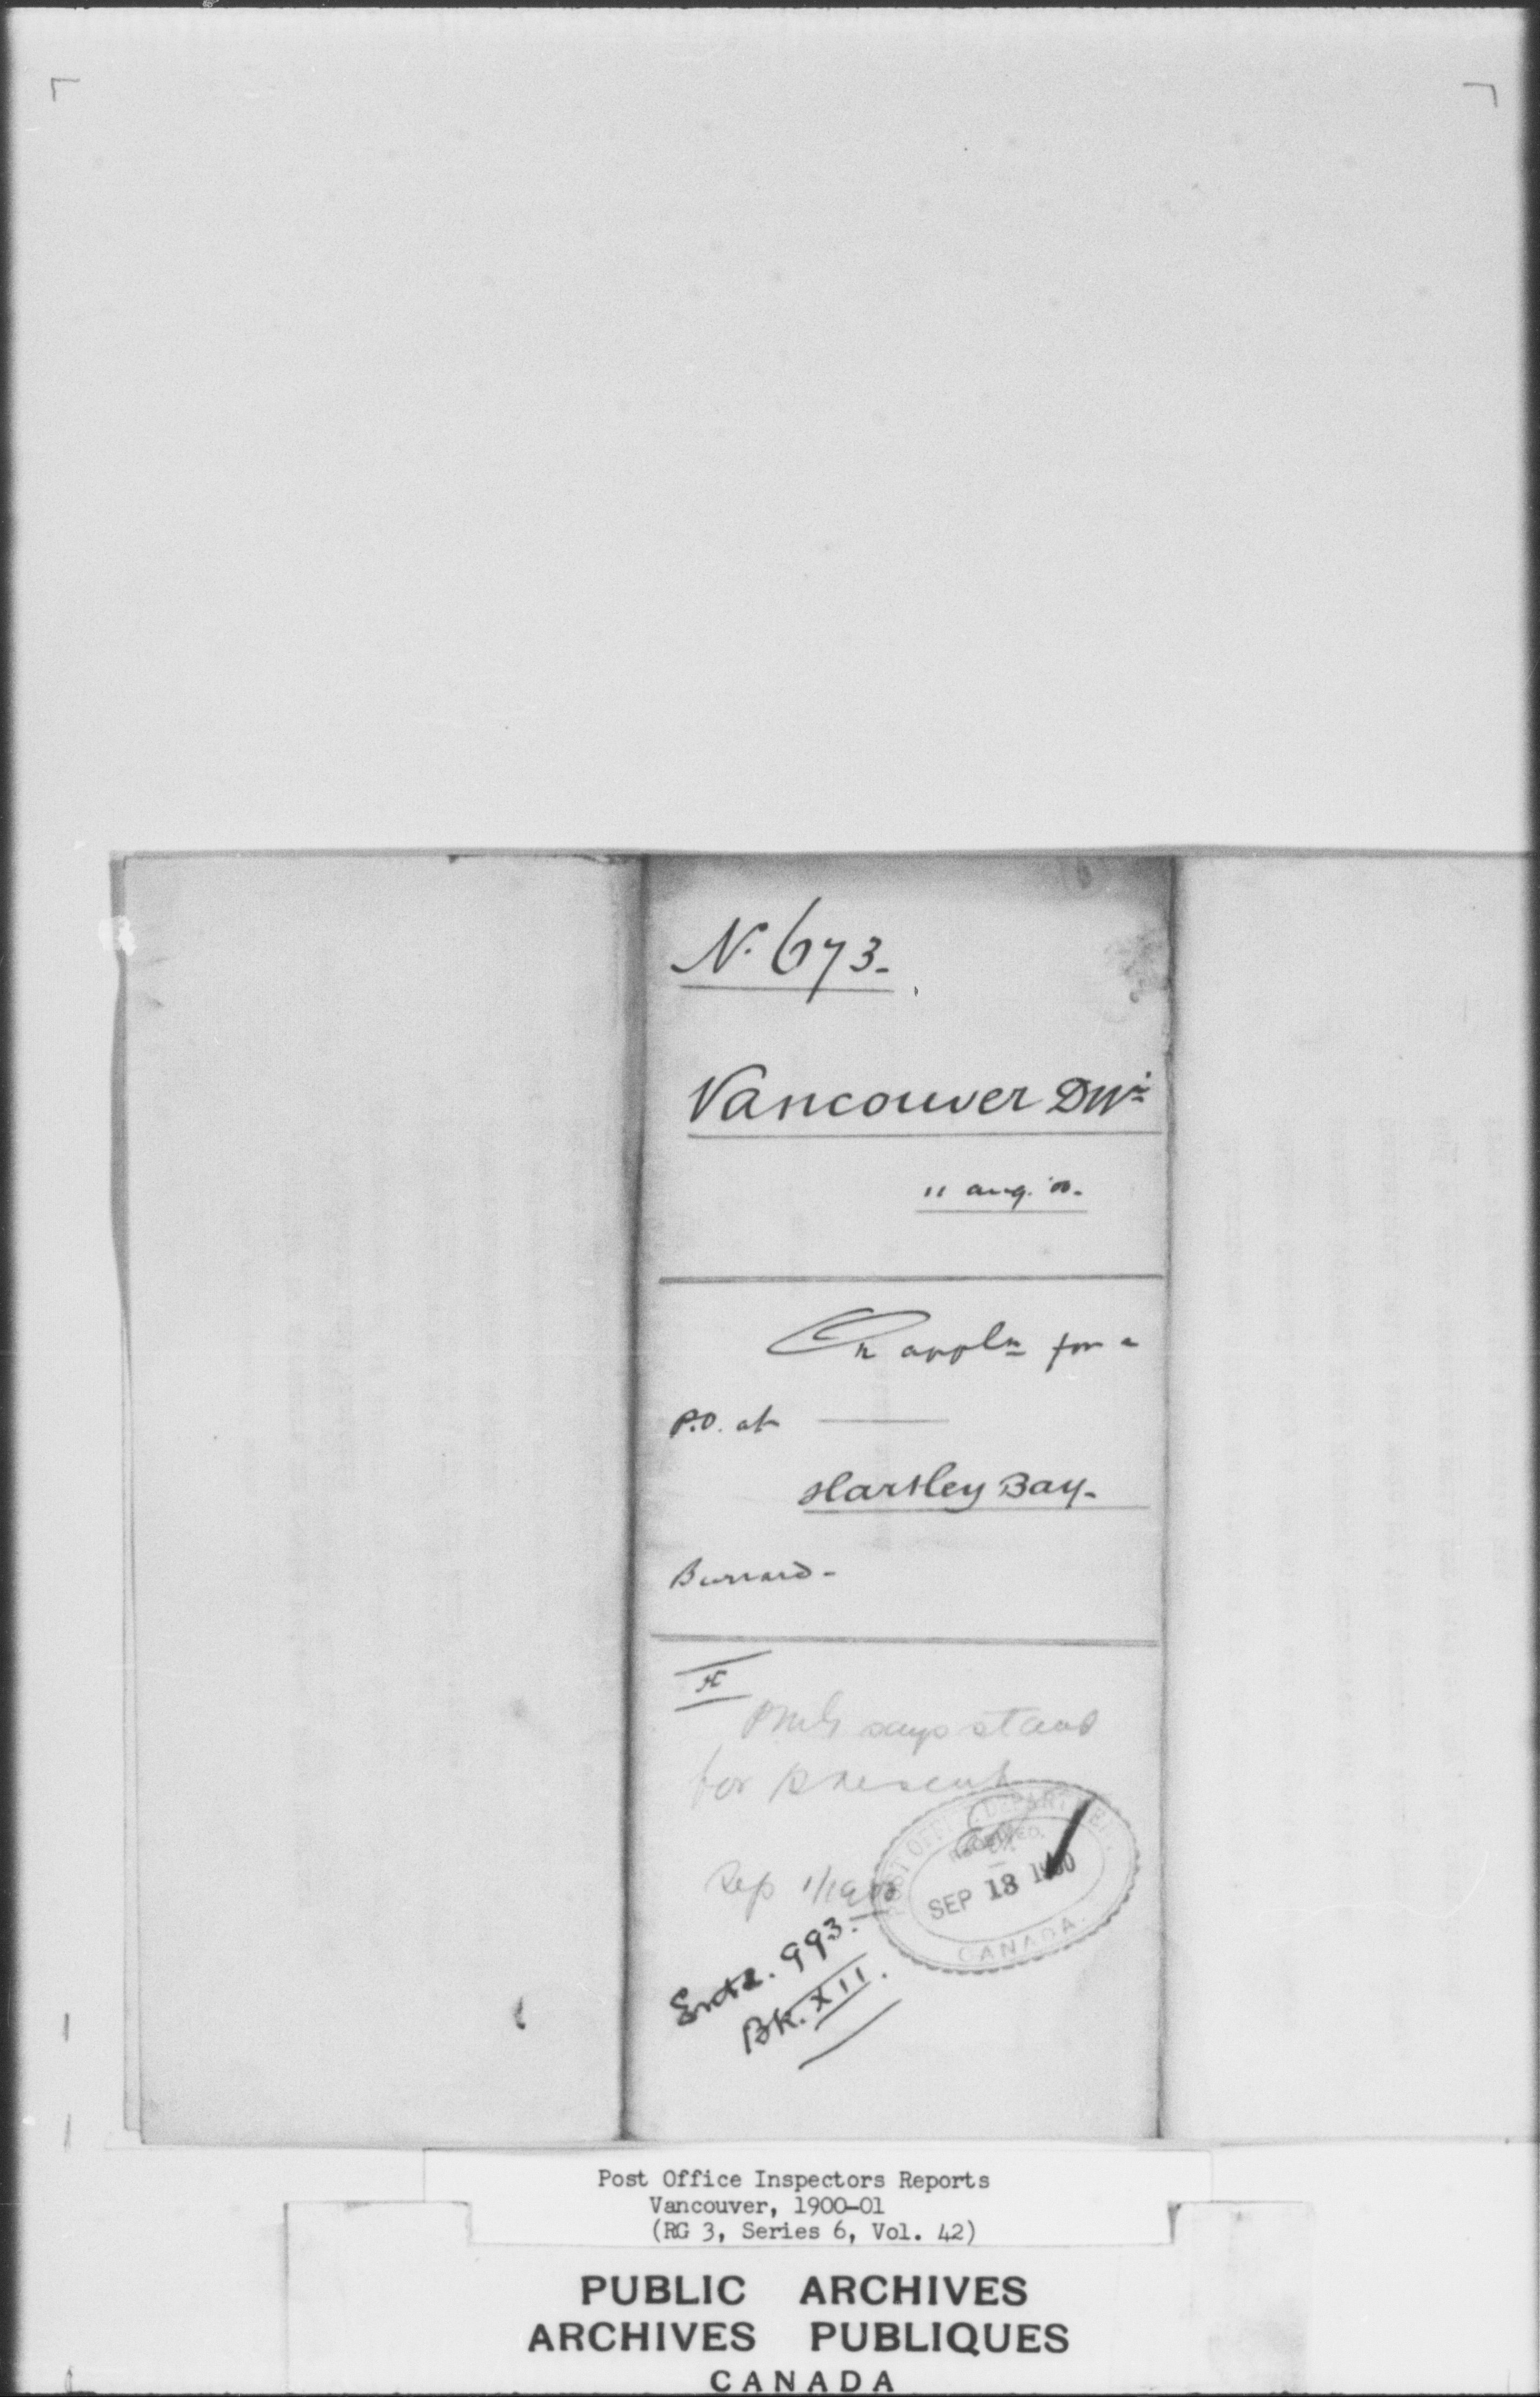 N. 673.
Vancouver Divn
11 Aug. '00.
On appln for a
P.O. at
Hartley Bay.
Burrard.
PMG says stand
for present
POST OFFICE DEPARTMENT.
RECEIVED.
SEP 18 1900
CANADA.
Sep
993.
Bk. XII.
Post Office Inspectors Reports
Vancouver, 1900-01
(RG 3, Series 6, Vol. 42)
PUBLIC ARCHIVES
ARCHIVES PUBLIQUES
CANADA